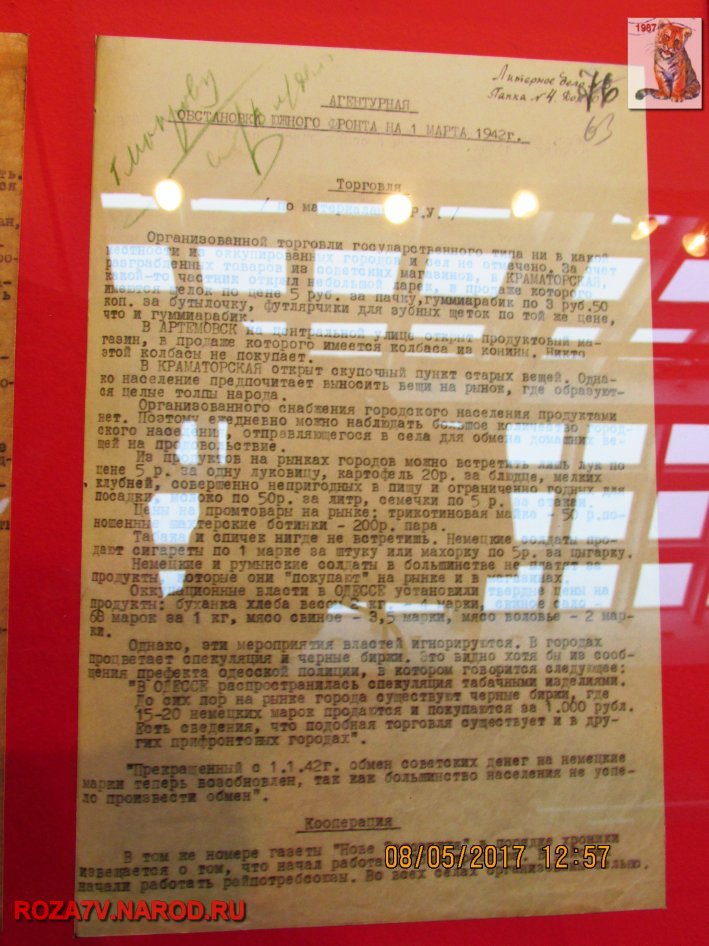 1987
Литерное дело
Папка № 4.
76
63
АГЕНТУРНАЯ
ОБСТАНОВКА ЮЖНОГО ФРОНТА НА 1 МАРТА 1942г.
Торговля
/ По материалам Р.У. /
Организованной торговли государственного типа ни в какой
местности из оккупированных городов и сел не отмечено. За счет
разграбленных товаров из советских магазинов, в КРАМАТОРСКАЯ,
какой-то частник открыл небольшой ларек, в продаже которого
имеются щелок по цене 5 руб. за пачку, гуммиарабик по 3 руб.50
коп. за бутылочку, футлярчики для зубных щеток по той же цене,
что и гуммиарабик.
В АРТЕМОВСК на центральной улице открыт продуктовый ма-
газин, в продаже которого имеется колбаса из конины. Никто
этой колбасы не покупает.
В КРАМАТОРСКАЯ открыт скупочный пункт старых вещей. Одна-
ко население предпочитает выносить вещи на рынок, где образуют-
ся целые толпы народа.
Организованного снабжения городского населения продуктами
нет. Поэтому ежедневно можно наблюдать большое количество город-
ского населения, отправляющегося в села для обмена домашних ве-
щей на продовольствие.
Из продуктов на рынках городов можно встретить лишь лук по
цене 5 р. за одну луковицу, картофель 20р. за блюдце, мелких
клубней, совершенно непригодных в пищу и ограниченно годных для
посадки, молоко по 50р. за литр, семечки по 5 р. за стакан.
Цены на промтовары на рынке: трикотиновая майка - 50 р.по-
ношенные шахтерские ботинки - 200р. пара.
Табака и спичек нигде не встретишь. Немецкие солдаты про-
дают сигареты по 1 марке за штуку или махорку по 5р. за цыгарку.
Немецкие и румынские солдаты в большинстве не платят за
продукты, которые они "покупают" на рынке и в магазинах.
Оккупационные власти в ОДЕССЕ установили твердые цены на
продукты: буханка хлеба весом 2 кг - 4 марки, свиное сало -
68 марок за 1 кг, мясо свиное - 3,5 марки, мясо воловье - 2 мар-
ки.
Однако, эти мероприятия властей игнорируются. В городах
процветает спекуляция и черные биржи. Это видно хотя бы из сооб-
щения префекта одесской полиции, в котором говорится следующее:
"В ОДЕССЕ распространилась спекуляция табачными изделиями.
До сих пор на рынке города существуют черные биржи, где
15-20 немецких марок продаются и покупаются за 1.000 рубл.
Есть сведения, что подобная торговля существует и в дру-
гих прифронтовых городах".
"Прекращенный с 1.1.42г. обмен советских денег на немецкие
марки теперь возобновлен, так как большинство населения не успе-
ло произвести обмен".
Кооперация
В том же номере газеты "Нове в порядке хроники
извещается о том, что начал работа
начали работать райпотребсоюзы. Во всех селах
08/05/2017 12:57
ROZA7V.NAROD.RU